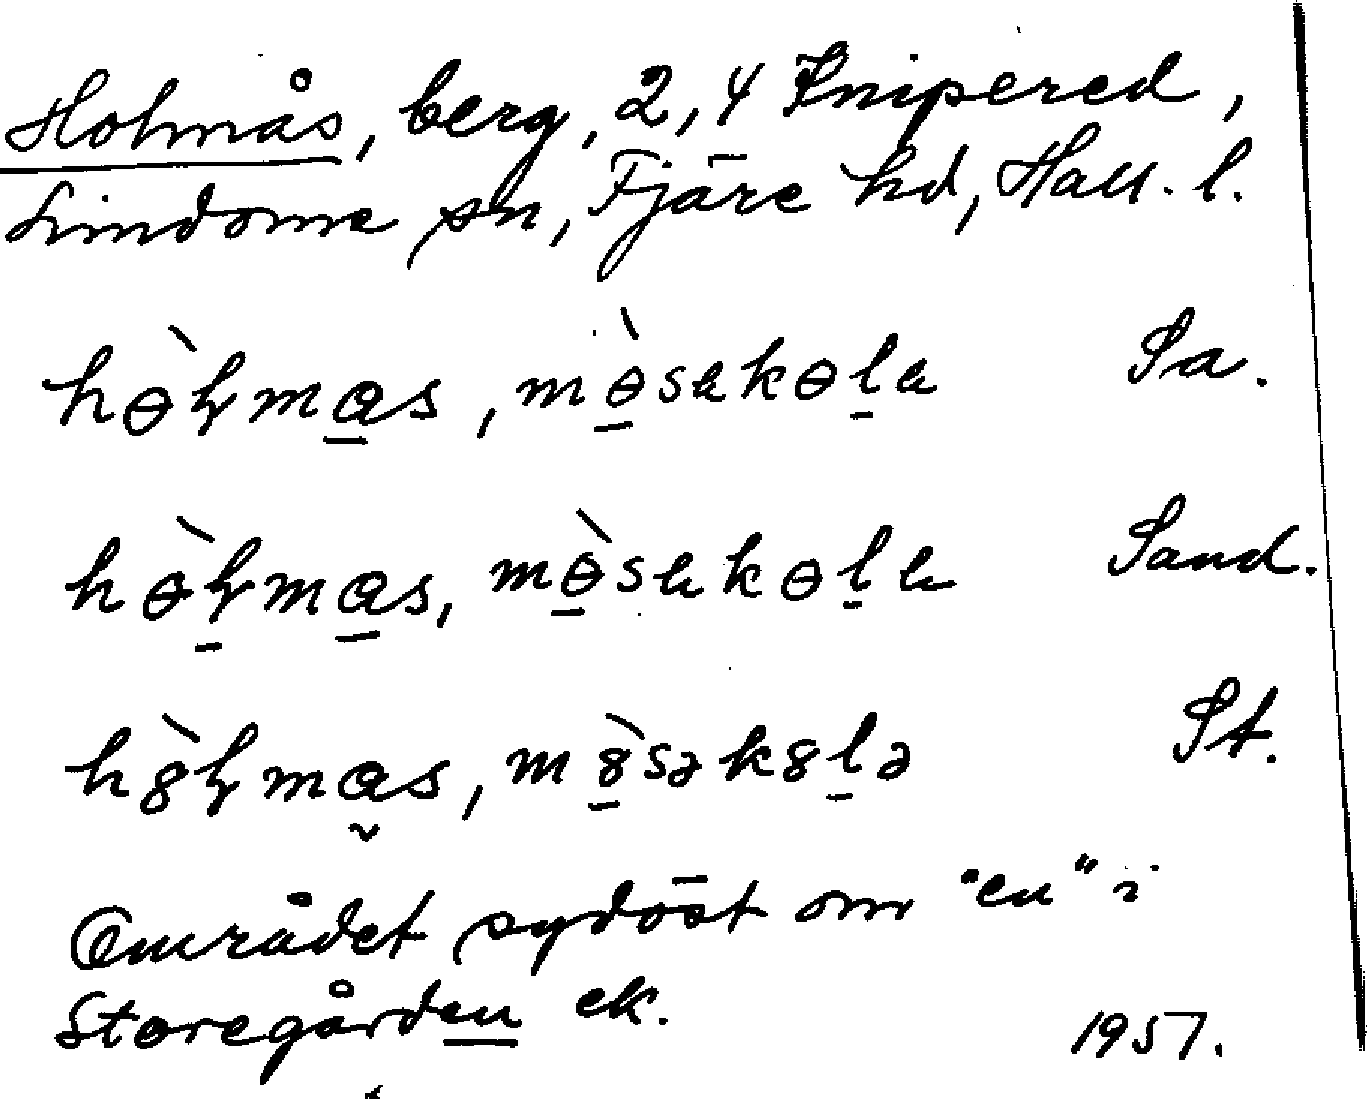 Holmås, berg, 2, 4 Knipered,
Lindome sn, Fjäre hd, Hall. l.
hɵ̀ɽmɑ̱s, mɵ̱̀sakɵḻa Sa.
hɵ̀ɽ̱mɑ̱s, mɵ̱̀sakɵḻa Sand.
h8̀ɽmɑ̬s, m8̱̀sək8ḻə St.
Området sydöst om "en" i
Storegården ek.
1957.